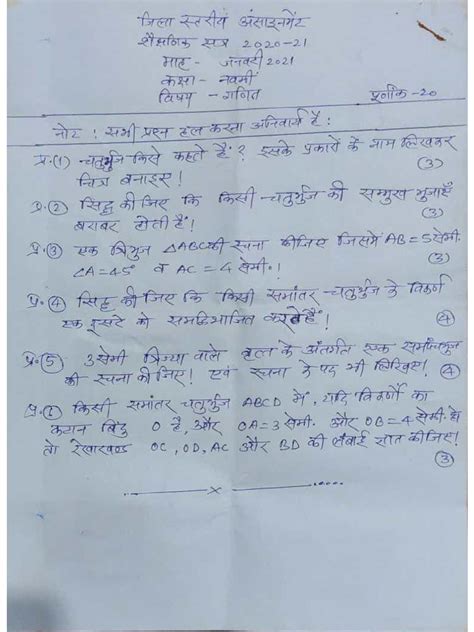 जिला स्तरीय असाइनमेंट
शैक्षणिक सत्र 2020-21
माह- जनवरी 2021
कक्षा- नवमीं
विषय- गणित पूर्णांक-20
नोट : सभी प्रश्न हल करना अनिवार्य है :
प्र.(1) चतुर्भुज किसे कहते हैं? इसके प्रकारों के नाम लिखकर
चित्र बनाइए! (3)
प्र.(2) सिद्ध कीजिए कि किसी चतुर्भुज की सम्मुख भुजाएँ
बराबर होती हैं! (3)
प्र.(3) एक त्रिभुज △ABC की रचना कीजिए जिसमें AB = 5 सेमी.
∠A=45° व AC = 4 सेमी.! (3)
प्र.(4) सिद्ध कीजिए कि किसी समांतर चतुर्भुज के विकर्ण
एक दूसरे को समद्विभाजित करते हैं! (4)
प्र.(5) 3 सेमी त्रिज्या वाले वृत्त के अंतर्गत एक
की रचना कीजिए! एवं रचना के पद भी लिखिए! (4)
प्र. किसी समांतर चतुर्भुज ABCD में, यदि विकर्णों का
कटान बिंदु O है, और OA=3 सेमी. और OB=4 सेमी. है
तो रेखाखण्ड OC, OD, AC और BD की लंबाई ज्ञात कीजिए!
(3)